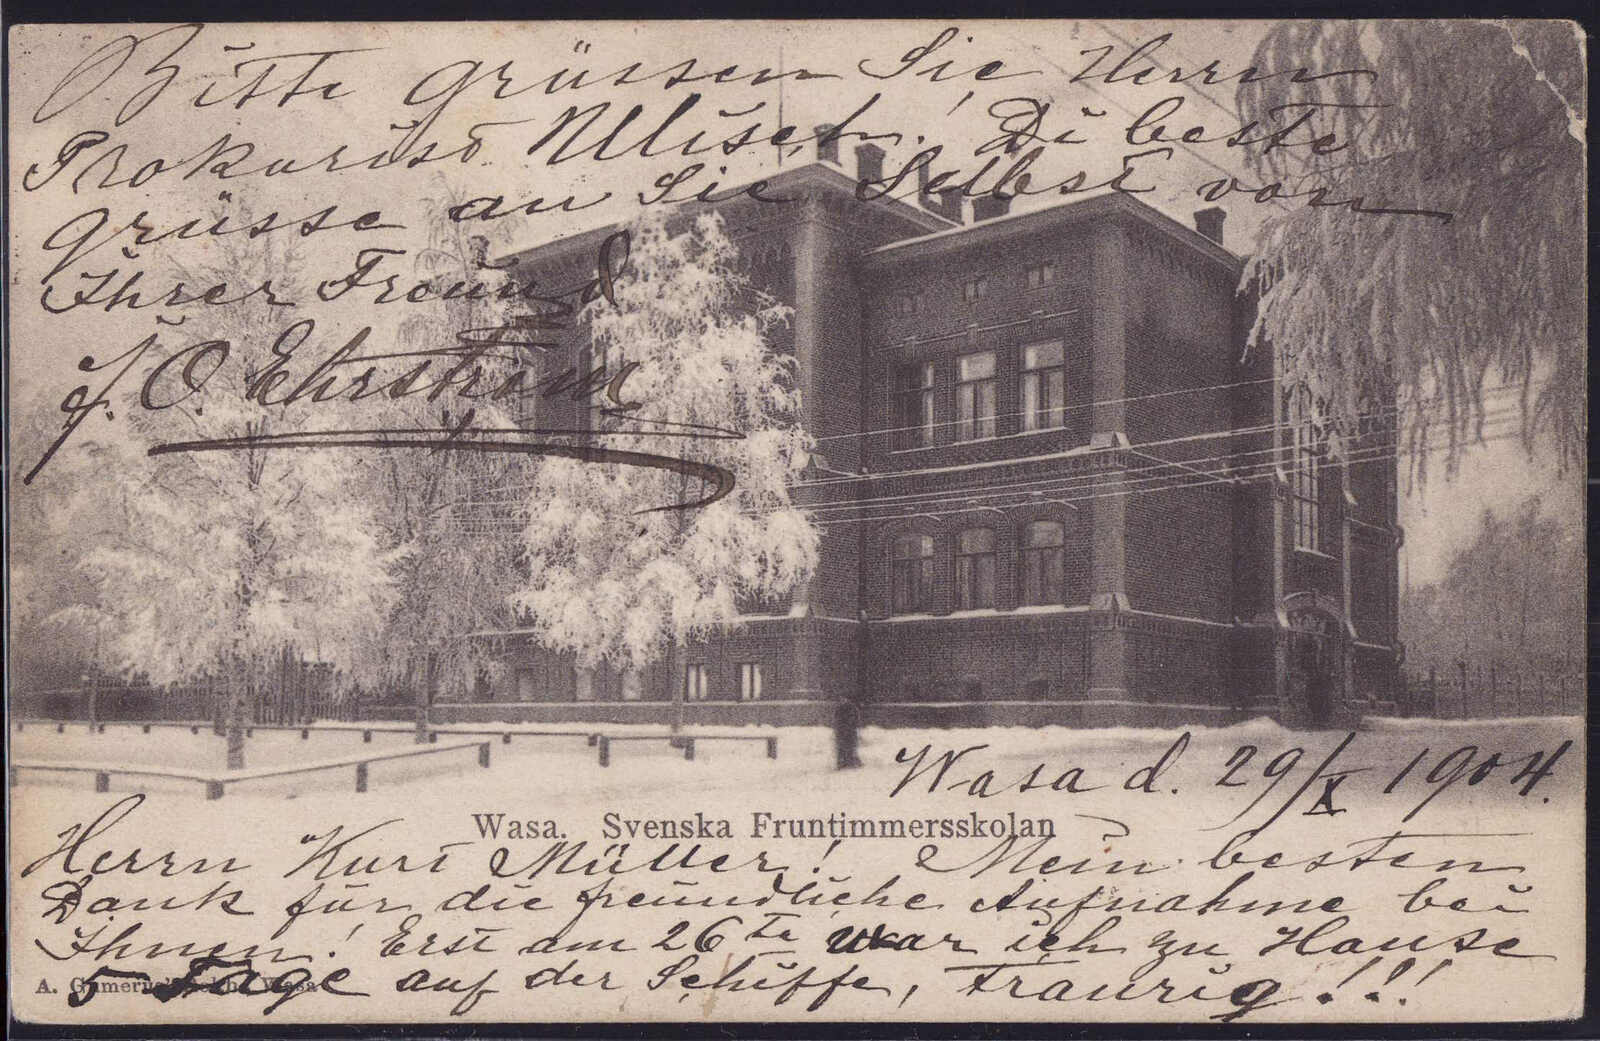 Bitte grüssen Sie Herrn
Prokurist Ulisch! Di beste
grüsse an Sie Selbst von
Ihrer Freund
J. O. Ehrström
Wasa d. 29/X 1904.
Wasa. Svenska Fruntimmersskolan
Herrn Kurt Müller! Mein besten
Dank für die freundliche Aufnahme bei
Ihnen! Erst am 26te war ich zu Hause
5 Tage auf der Schiffe, Traurig!!!
A. Wasa